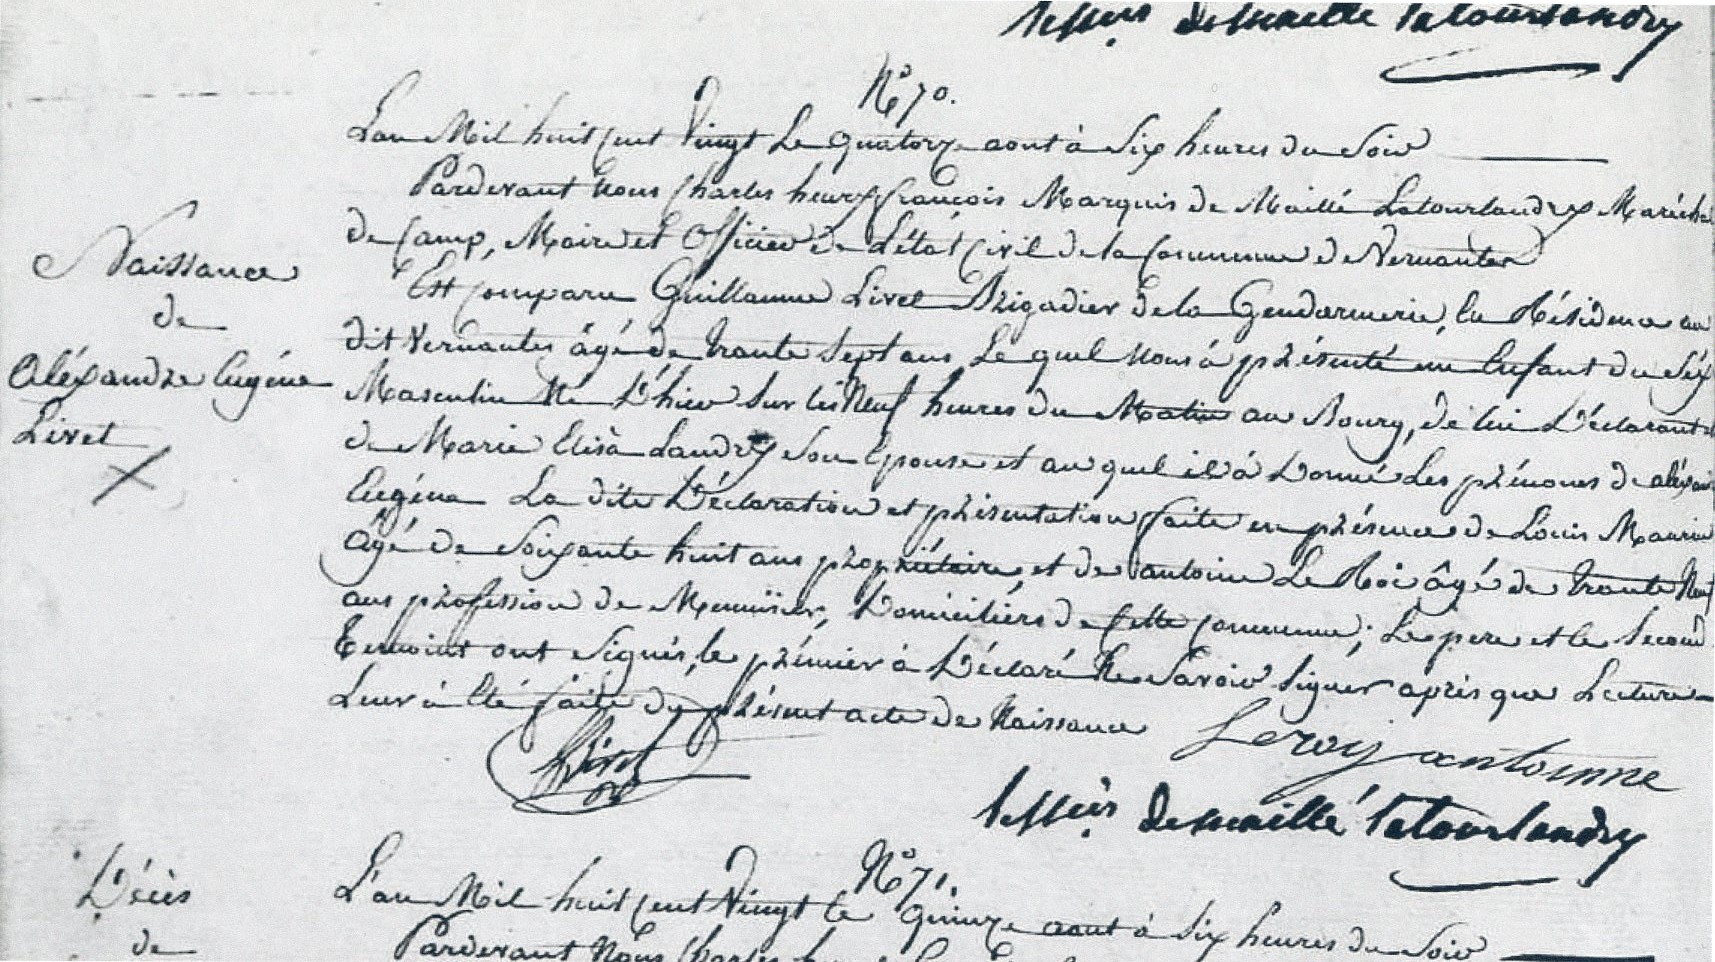 le Mis. de maillé latourlandry
N° 70.
L'an Mil huit Cent Vingt Le Quatorze aout à Six heures du Soir
Pardevant Nous Charles henry françois Marquis de Maillé Latourlandry Maréchal
de Camp, Maire et Officier de L'état Civil de la Commune de Vernantes
Naissance
de
Aléxandre Eugéne
Livet
Est Comparu Guillaume Livet Brigadier de la Gendarmerie, en Résidence au
dit Vernantes âgé de trante Sept ans, Le quel Nous à présenté un Enfant du Séxe
Masculin Né D'hier Sur les Neuf heures du Matin au Bourg, de lui Déclarant et
de Marie Elisà Landry Son Epouse et au quel il à Donné Les prénoms de aléxandre
Eugéne La dite Déclaration et présentation faite en présence de Louis Maurin
Agé de Soixante huit ans propriétaire, et de antoine Le Roi âgé de trante Neuf
ans profession de Menuisier, Domiciliérs de Cette Commune; Le pere et le Second
temoint ont Signés, le prémier à Déclaré Ne Savoir Signer après que Lecture
Leur à Eté faite du présent acte de Naissance
Livet
Leroy antoinne
le Mis. de maillé latourlandry
N° 71.
Décès
de
L'an Mil huit Cent Vingt le Quinze aout à Six heures du Soir
Pardevant Nous Charles